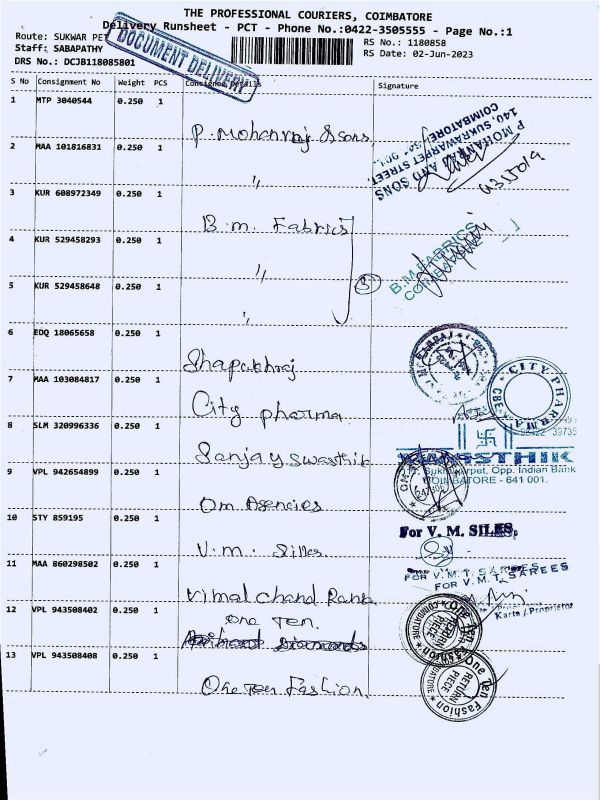 THE PROFESSIONAL COURIERS, COIMBATORE
Delivery Runsheet - PCT - Phone No.:0422-3505555 - Page No.:1
Route: SUKWAR PET
RS No.: 1180858
Staff: SABAPATHY
RS Date: 02-Jun-2023
DRS No.: DCJB118085801
DOCUMENT DELIVERY
S No Consignment No Weight PCS Consignee Details Signature
1 MTP 3040544 0.250 1
P. Mohanraj & sons
P MOHANRAJ AND SONS
146, SUKRAWARPET STREET,
COIMBATORE
2 MAA 101816831 0.250 1
"
3 KUR 608972349 0.250 1
B.m. Fabrics
B.M.FABRICS
4 KUR 529458293 0.250 1
"
5 KUR 529458648 0.250 1
"
3
6 EDQ 18065658 0.250 1
7 MAA 103084817 0.250 1
City pharma
CITY PHARMA
CBE
8 SLM 320996336 0.250 1
Sanjay Swasthik
SWASTHIK
Sukrawarpet, Opp. Indian Bank
COIMBATORE - 641 001.
9 VPL 942654899 0.250 1
Om Agencies
10 STY 859195 0.250 1
V.m. Silles
For V. M. SILES,
11 MAA 860298502 0.250 1
Vimal Chand Ranka
FOR V.M.T. SAREES
FOR V.M.T. SAREES
Karta / Proprietor
12 VPL 943508402 0.250 1
one Ten.
One Ten Fashion
RETURN PIECE
COIMBATORE
13 VPL 943508408 0.250 1
One Ten Fashion.
One Ten Fashion
RETURN PIECE
COIMBATORE